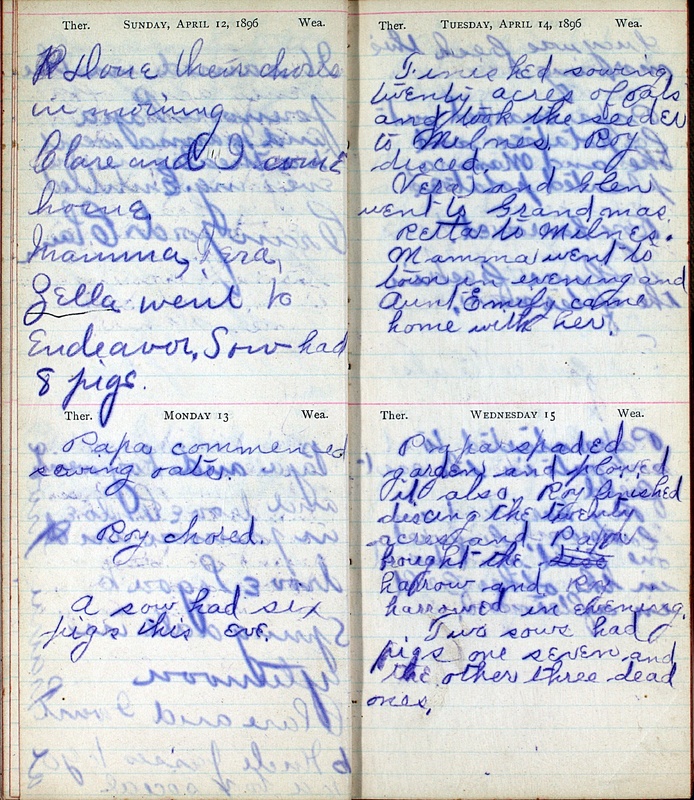 Ther. SUNDAY, APRIL 12, 1896 Wea.
R Done their chores
in morning
Clare and I come
home.
Mamma, Vera,
Zella went to
Endeavor, Sow had
8 pigs.
Ther. MONDAY 13 Wea.
Papa commenced
sewing oats.
Roy chored.
A sow had six
pigs this eve.
Ther. TUESDAY, APRIL 14, 1896 Wea.
Finished sowing
twenty acres of oats
and took the seeder
to Milnes. Roy
disced.
Vera and Glen
went to Grandmas.
Retta to Milnes.
Mamma went to
town in evening and
Aunt Emily came
home with her.
Ther. WEDNESDAY 15 Wea.
Papa spaded
garden and plowed
it also. Roy finished
discing the twenty
acres and Papa
brought the
harrow and Roy
harrowed in evening.
Two sows had
pigs one seven and
the other three dead
ones,